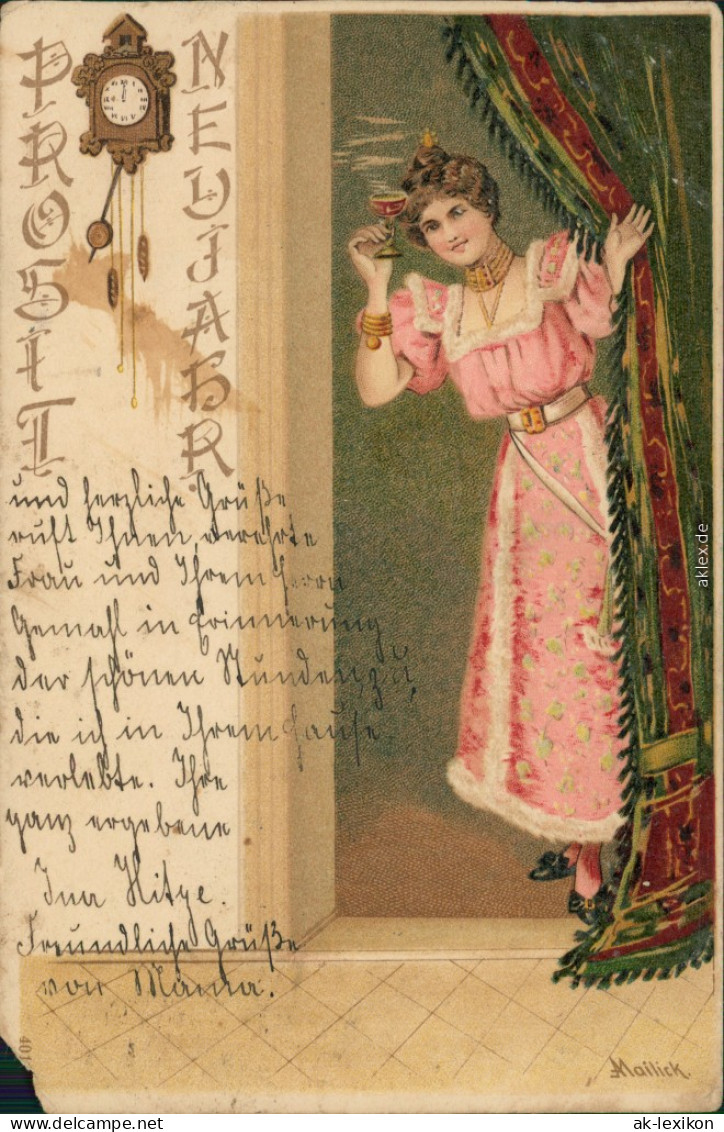 PROSIT
NEUJAHR
und herzliche Grüße
ruft Ihnen, verehrte
Frau und Ihrem Herrn
Gemahl in Erinnerung
der schönen Stunden, zu,
die ich in Ihrem Hause
verlebte. Ihre
ganz ergebene
Ina Hitze.
Freundliche Grüße
von Mama.
401
Mailick.
aklex.de
www.ansichtskarten-lexikon.de
ak-lexikon